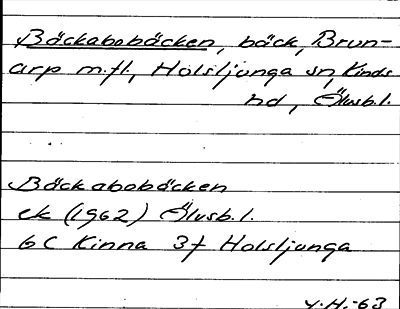 Bäckabobäcken, bäck, Brun-
arp m.fl., Holsljunga sn, Kinds
hd, Älvsb.l.
Bäckabobäcken
ek (1962) Älvsb.l.
6C Kinna 3f Holsljunga
Y.H.-63